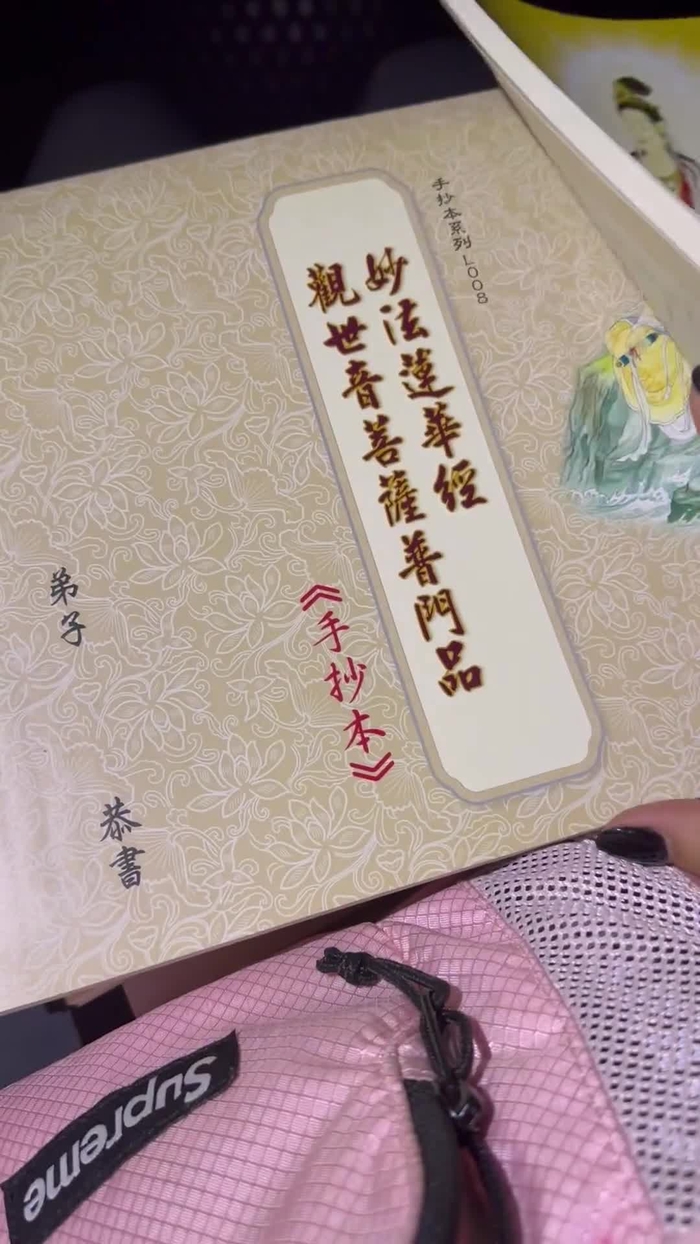 手抄本系列 L008
妙法蓮華經
觀世音菩薩普門品
《手抄本》
弟子
恭書
Supreme